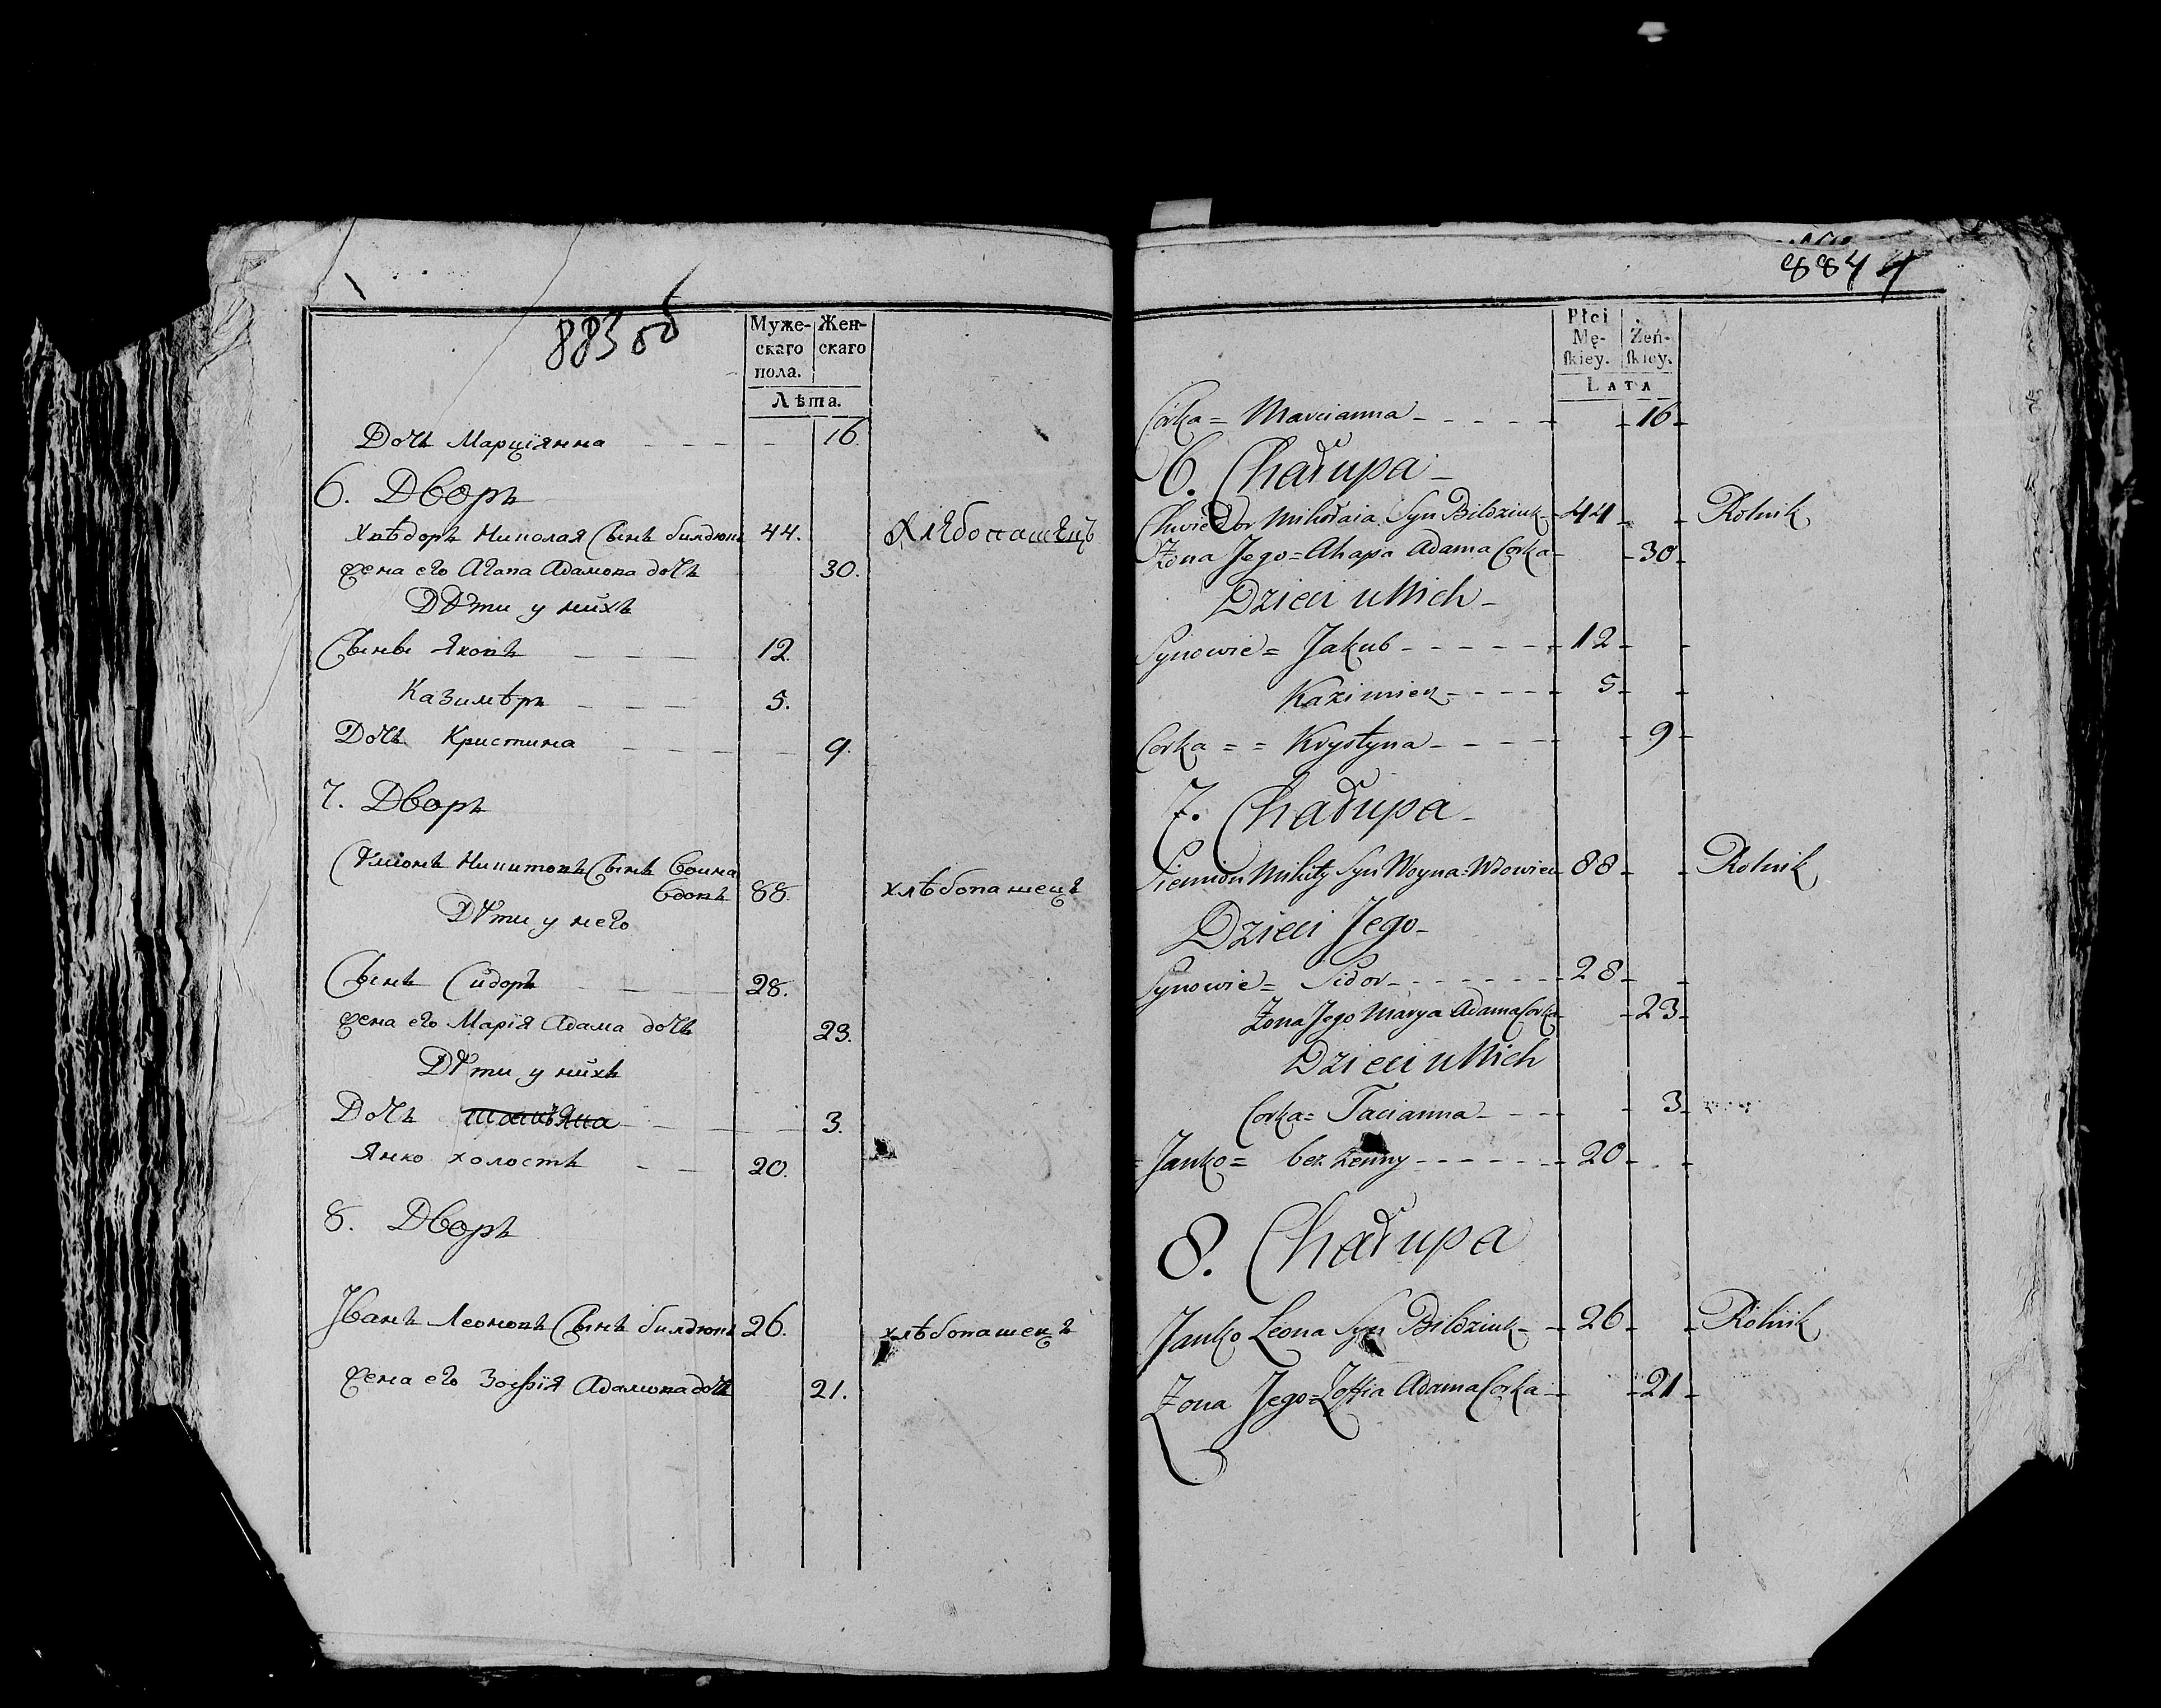 883 об
Муже-
скаго
пола.
Жен-
скаго
Лѣта.
Дочь Марціянна - - - - 16.
6. Дворъ
Хвѣдоръ Николая Сынъ билдюкъ 44. Хлѣбопашецъ
жена его Агапа Адамова дочь 30.
Дѣти у нихъ
Сыны Яковъ - - - 12.
Казимѣръ - - - 5.
Дочь Кристина - - - - 9.
7. Дворъ
Сѣмионъ Никитовъ Сынъ Воина
вдовъ 88. хлѣбопашецъ
Дѣти у него
Сынъ Сидоръ - - - 28.
жена его Марія Адама дочь 23.
Дѣти у нихъ
Дочь - - - - 3.
Янко холостъ - - 20.
8. Дворъ
Иванъ Леоновъ Сынъ билдюкъ 26. хлѣбопашецъ
жена его Зофія Адамова дочь 21.
884
Płci
Mę-
ſkiey.
Żeń-
ſkiey.
LATA
Corka = Marcianna - - - - - 16
6. Chałupa
Chwiedor Mikołaia Syn Bildziuk 44 Rolnik
Żona Jego = Ahapa Adama Corka 30
Dzieci u Nich
Synowie = Jakub - - - - - 12
Kazimierz - - - - 5
Corka = = Krystyna - - - - 9
7. Chałupa
Siemion Mikity Syn Woyna Wdowiec 88 Rolnik
Dzieci Jego
Synowie = Sidor - - - - - 28
Żona Jego Marya Adama Corka 23
Dzieci u Nich
Corka = Tacianna - - - 3
Janko = bez żenny - - - - - - 20
8. Chałupa
Janko Leona Syn Bildziuk 26 Rolnik
Żona Jego = Zoffia Adama Corka 21